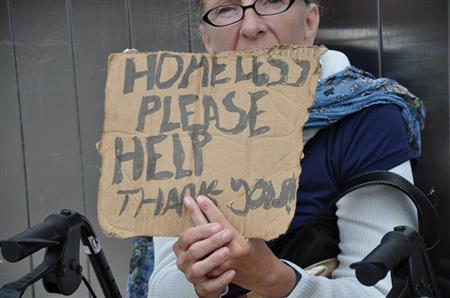 HOMELESS
PLEASE
HELP
THANK YOU!